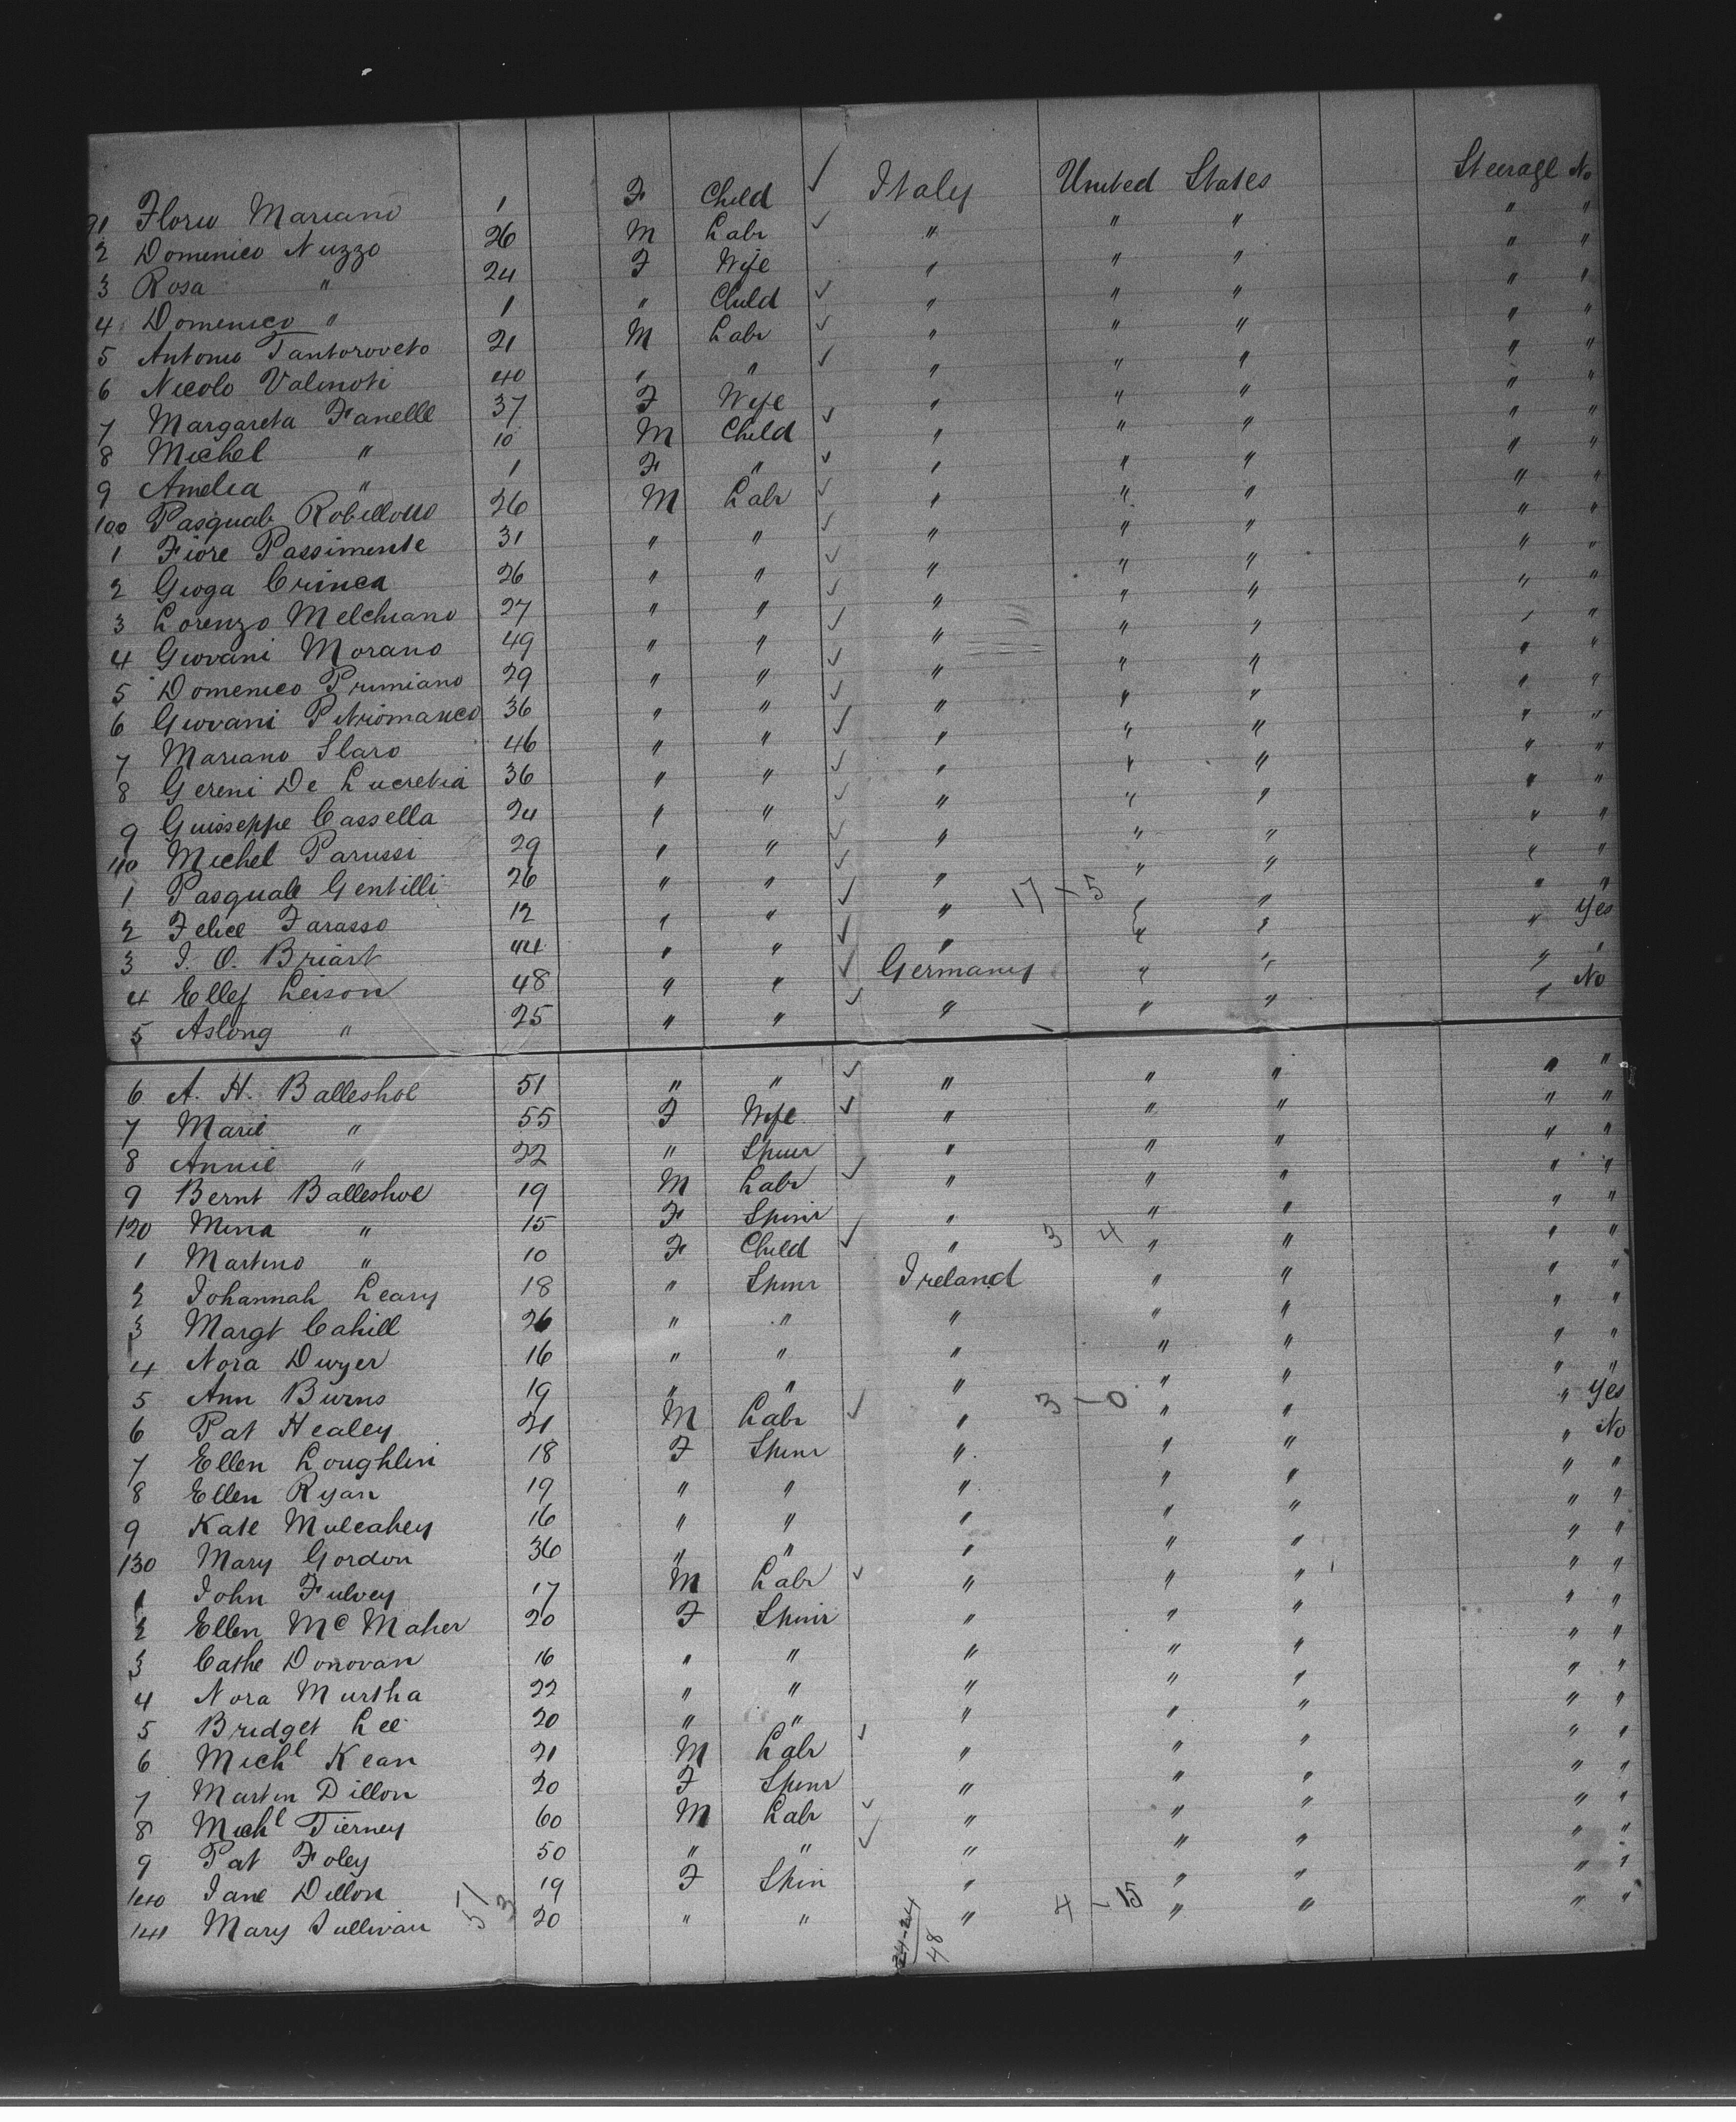 91 Florio Mariano 1 F Child ✓ Italy United States Steerage No
2 Domenico Nuzzo 26 M Labr ✓ " " " " "
3 Rosa " 24 F Wife " " " " "
4 Domenico " 1 " Child ✓ " " " " "
5 Antonio Tantoroveto 21 M Labr ✓ " " " " "
6 Nicolo Valinoti 40 " " ✓ " " " " "
7 Margareta Fanelle 37 F Wife " " " " "
8 Michel " 10 M Child ✓ " " " " "
9 Amelia " 1 F " ✓ " " " " "
100 Pasquale Robillotto 26 M Labr ✓ " " " " "
1 Fiore Passimente 31 " " ✓ " " " " "
2 Gioga Crinca 26 " " ✓ " " " " "
3 Lorenzo Melchiano 27 " " ✓ " " " " "
4 Giovani Morano 49 " " ✓ " " " " "
5 Domenico Primiano 29 " " ✓ " " " " "
6 Giovani Petriomanco 36 " " ✓ " " " " "
7 Mariano Slaro 46 " " ✓ " " " " "
8 Gereni De Lucretia 36 " " ✓ " " " " "
9 Guisseppe Cassella 24 " " ✓ " " " " "
110 Michel Parussi 29 " " ✓ " " " " "
1 Pasquale Gentilli 26 " " ✓ " " " " "
2 Felice Farasso 12 " " ✓ " 17 - 5 " " " Yes
3 J. O. Briart 44 " " ✓ " " " " "
4 Ellef Leison 48 " " ✓ Germany " " " No
5 Aslong " 25 " " ✓ " " " "
6 A. H. Balleshol 51 " " ✓ " " " " "
7 Marie " 55 F Wife ✓ " " " " "
8 Annie " 22 " Spinr " " " " "
9 Bernt Balleshol 19 M Labr ✓ " " " " "
120 Mina " 15 F Spinr " " " " "
1 Martino " 10 F Child ✓ " 3 4 " " " "
2 Johannah Leary 18 " Spinr Ireland " " " "
3 Margt Cahill 26 " " " " " " "
4 Nora Dwyer 16 " " " " " " "
5 Ann Burns 19 " " " " " " "
6 Pat Healey 21 M Labr ✓ " 3 - 0 " " " Yes
7 Ellen Loughlin 18 F Spinr " " " " No
8 Ellen Ryan 19 " " " " " " "
9 Kate Mulcahey 16 " " " " " " "
130 Mary Gordon 36 " " " " " " "
1 John Fulvey 17 M Labr ✓ " " " " "
2 Ellen Mc Maher 20 F Spinr " " " " "
3 Cathe Donovan 16 " " " " " " "
4 Nora Murtha 22 " " " " " " "
5 Bridget Lee 20 " " " " " " "
6 Michl Kean 21 M Labr ✓ " " " " "
7 Martin Dillon 20 F Spinr " " " " "
8 Michl Tierney 60 M Labr ✓ " " " " "
9 Pat Foley 50 " " ✓ " " " " "
140 Jane Dillon 19 F Spin " " " " "
141 Mary Sullivan 51 3 20 " " " 4 - 15 " " " "
24-24
48